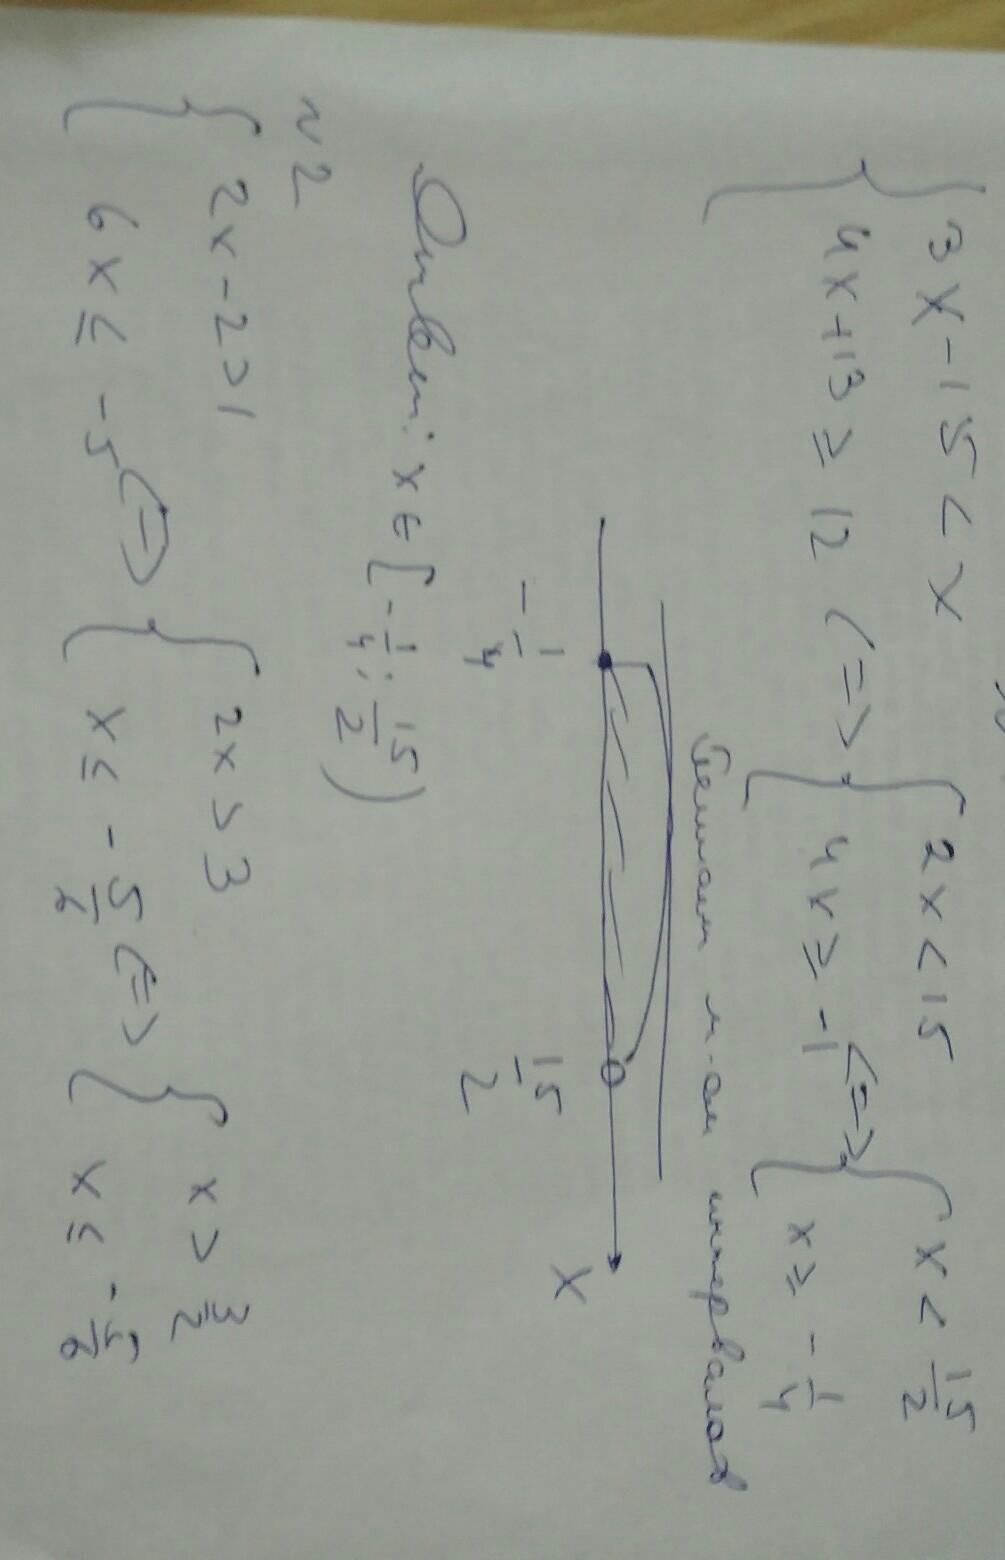 { 3x - 15 < x
{ 4x + 13 ≥ 12 <=> { 2x < 15
{ 4x ≥ -1 <=> { x < 15/2
{ x ≥ - 1/4
Решаем м-ом интервалов
- 1/4 15/2 x
Ответ: x ∈ [- 1/4; 15/2)
~2
{ 2x - 2 > 1
{ 6x ≤ -5 <=> { 2x > 3
{ x ≤ - 5/6 <=> { x > 3/2
{ x ≤ - 5/6